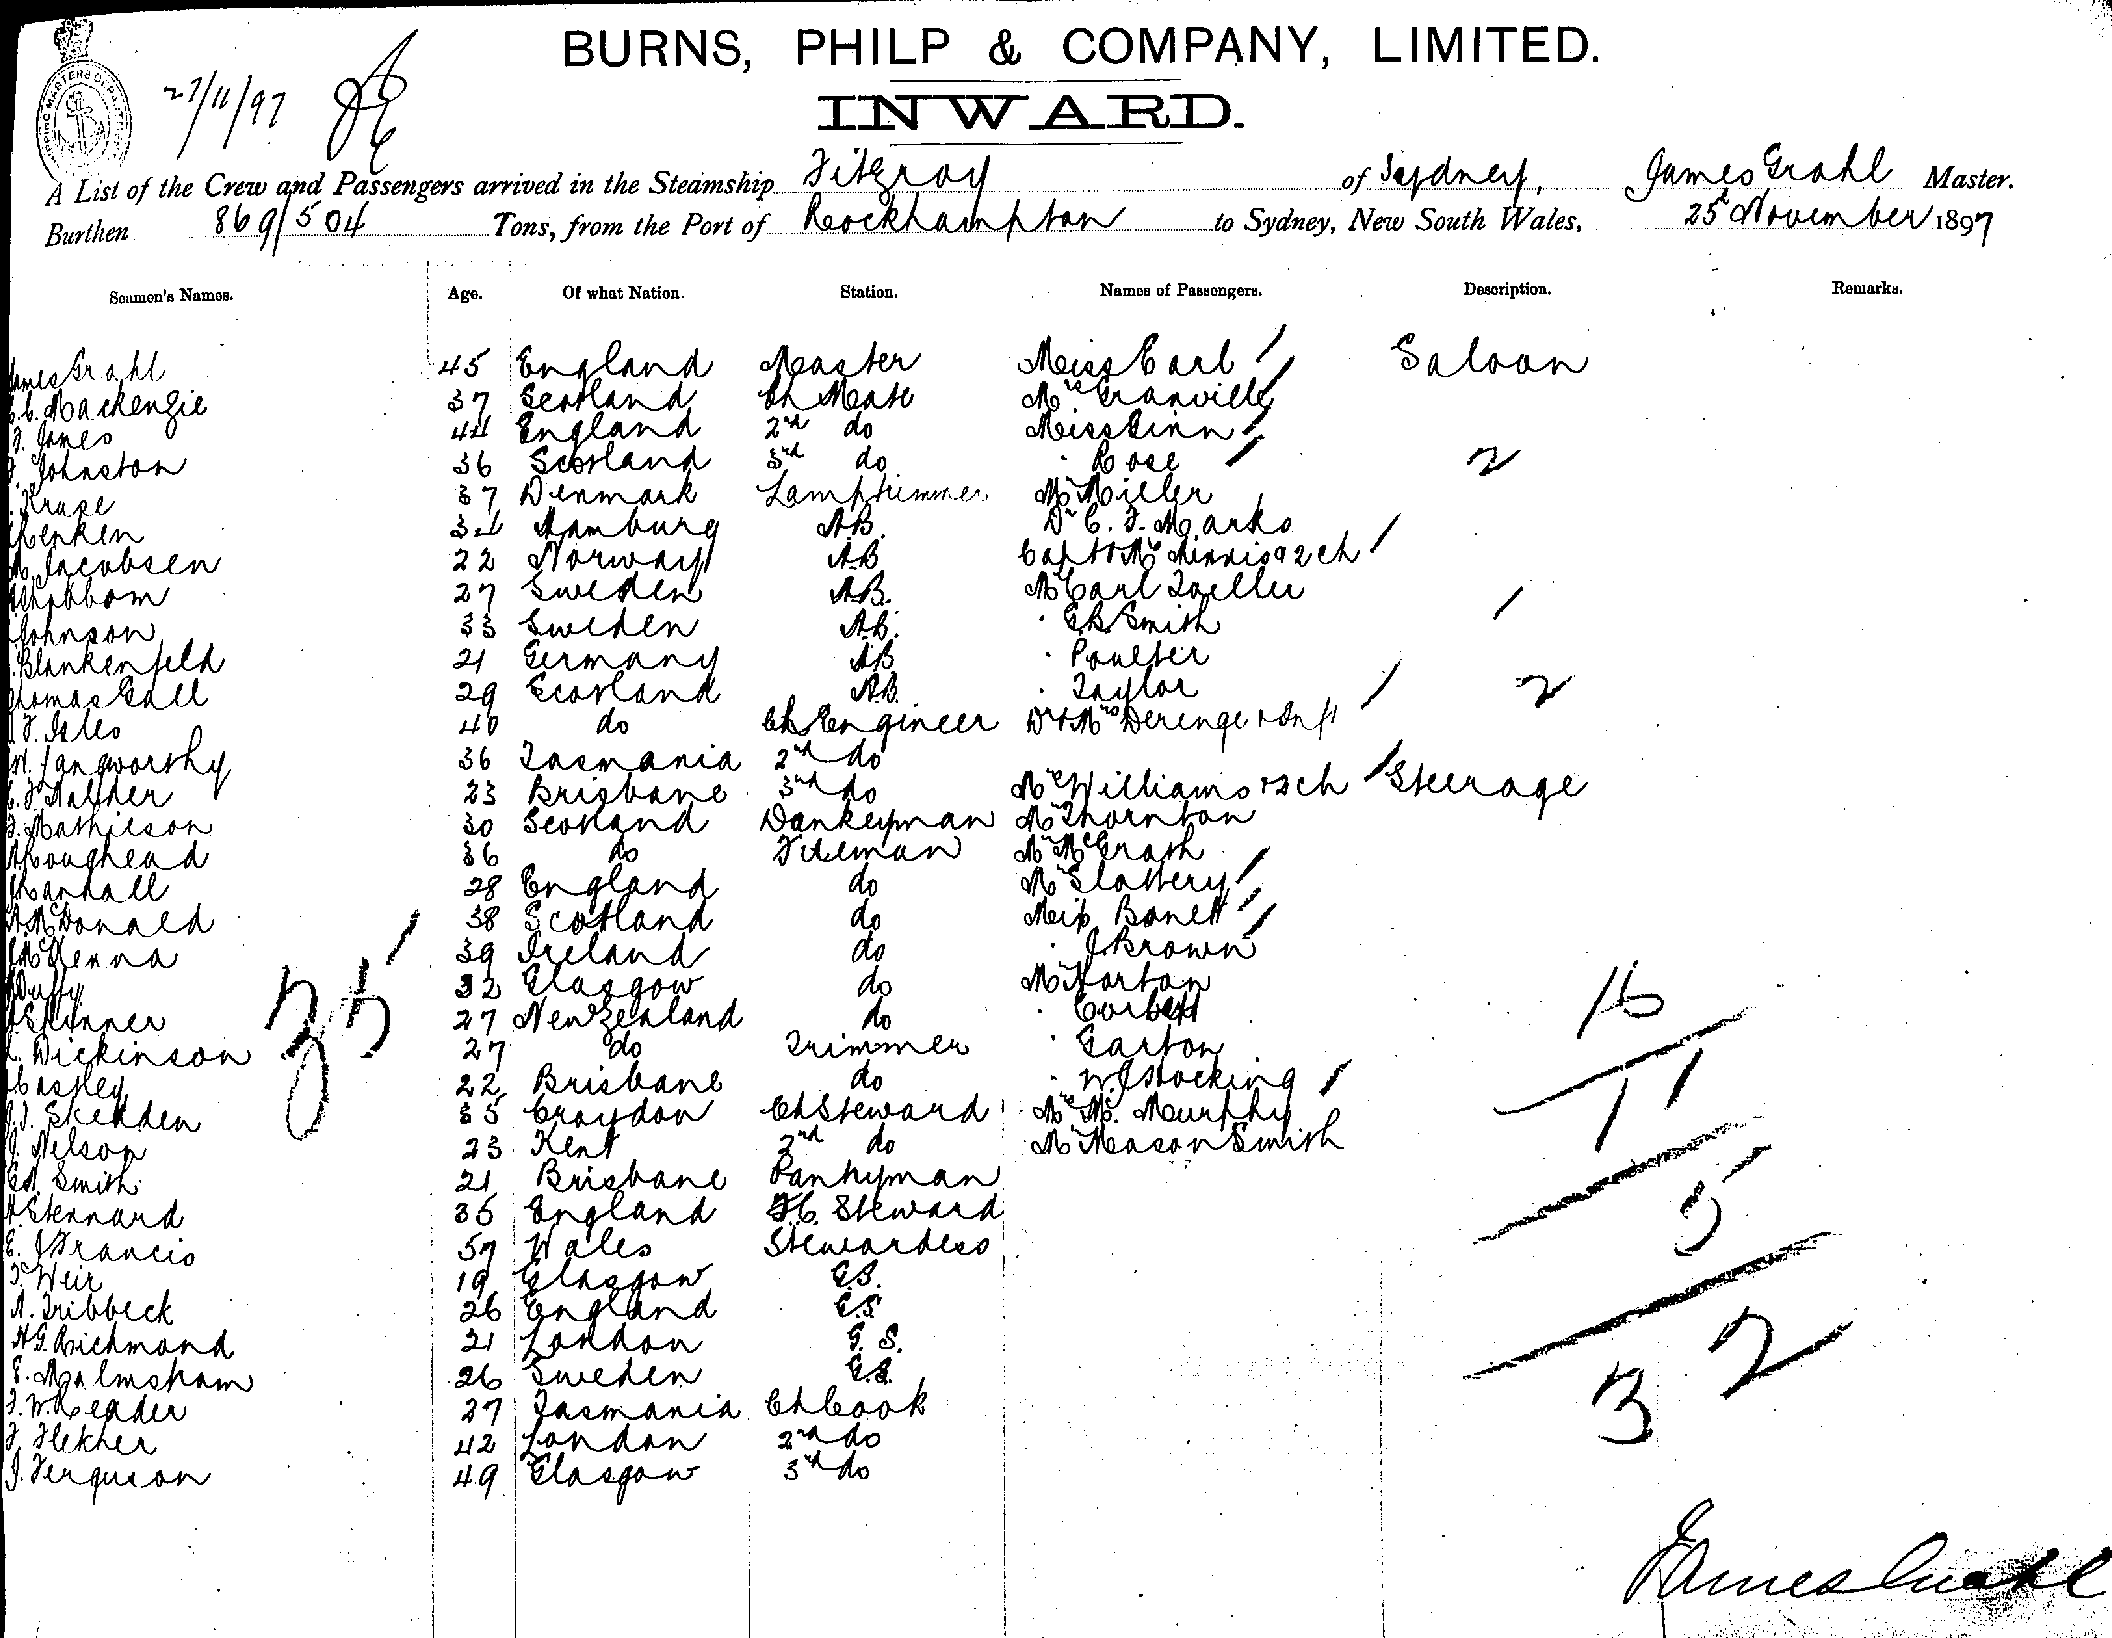 BURNS, PHILP & COMPANY, LIMITED.
27/11/97
INWARD.
A List of the Crew and Passengers arrived in the Steamship Fitzroy of Sydney, James Grahl Master.
Burthen 869/504 Tons, from the Port of Rockhampton to Sydney, New South Wales, 25 November 1897
Seamen's Names. Age. Of what Nation. Station. Names of Passengers. Description. Remarks.
James Grahl 45 England Master Miss Carl / Saloon
Mackenzie 37 Scotland Ch Mate Mrs Granville /
Jones 44 England 2nd do Miss Ginn /
Johnston 36 Scotland 3rd do " Rose / 2
Kruse 37 Denmark Lamptrimmer Mr Miller
Menken 34 Hamburg AB. Dr C. F. Marks
Jacobsen 22 Norway AB Capt & Mrs 2 ch /
27 Sweden AB. Mr Carl Zoeller
Johnson 33 Sweden AB. " Smith /
Blankenfeld 21 Germany AB " Poulter
Thomas Gall 29 Scotland AB. " Taylor / 2
F. Isles 40 do Ch Engineer Dr & Mrs Derenge & Inft
Langworthy 36 Tasmania 2nd do
23 Brisbane 3rd do Mrs Williams & 2 ch / Steerage
Mathieson 30 Scotland Donkeyman Mr Thornton
Roughead 36 do Fireman Mr McGrath
Randall 28 England do Mr Slattery /
McDonald 38 Scotland do Miss Bonett /
McKenna 39 Ireland do " J Brown /
Duffy 32 Glasgow do Mr Horton
35 /
Skinner 27 New Zealand do " Corbett
16
Dickinson 27 do Trimmer " Garton
Castley 22 Brisbane do " W J Hocking /
11
Skedden 35 Croydon Ch Steward Mrs M. Murphy
Nelson 23 Kent 2nd do Mr Mason Smith
Smith 21 Brisbane Pantryman
5
Stennard 35 England F.C. Steward
E. J Francis 57 Wales Stewardess
Weir 19 Glasgow G.S.
A. Tribbeck 26 England G.S.
H G. Richmond 21 London G.S.
32
E. Malmsham 26 Sweden G.S.
F. W. Leader 27 Tasmania Ch Cook
F. Fletcher 42 London 2nd do
J. Ferguson 49 Glasgow 3rd do
James Grahl